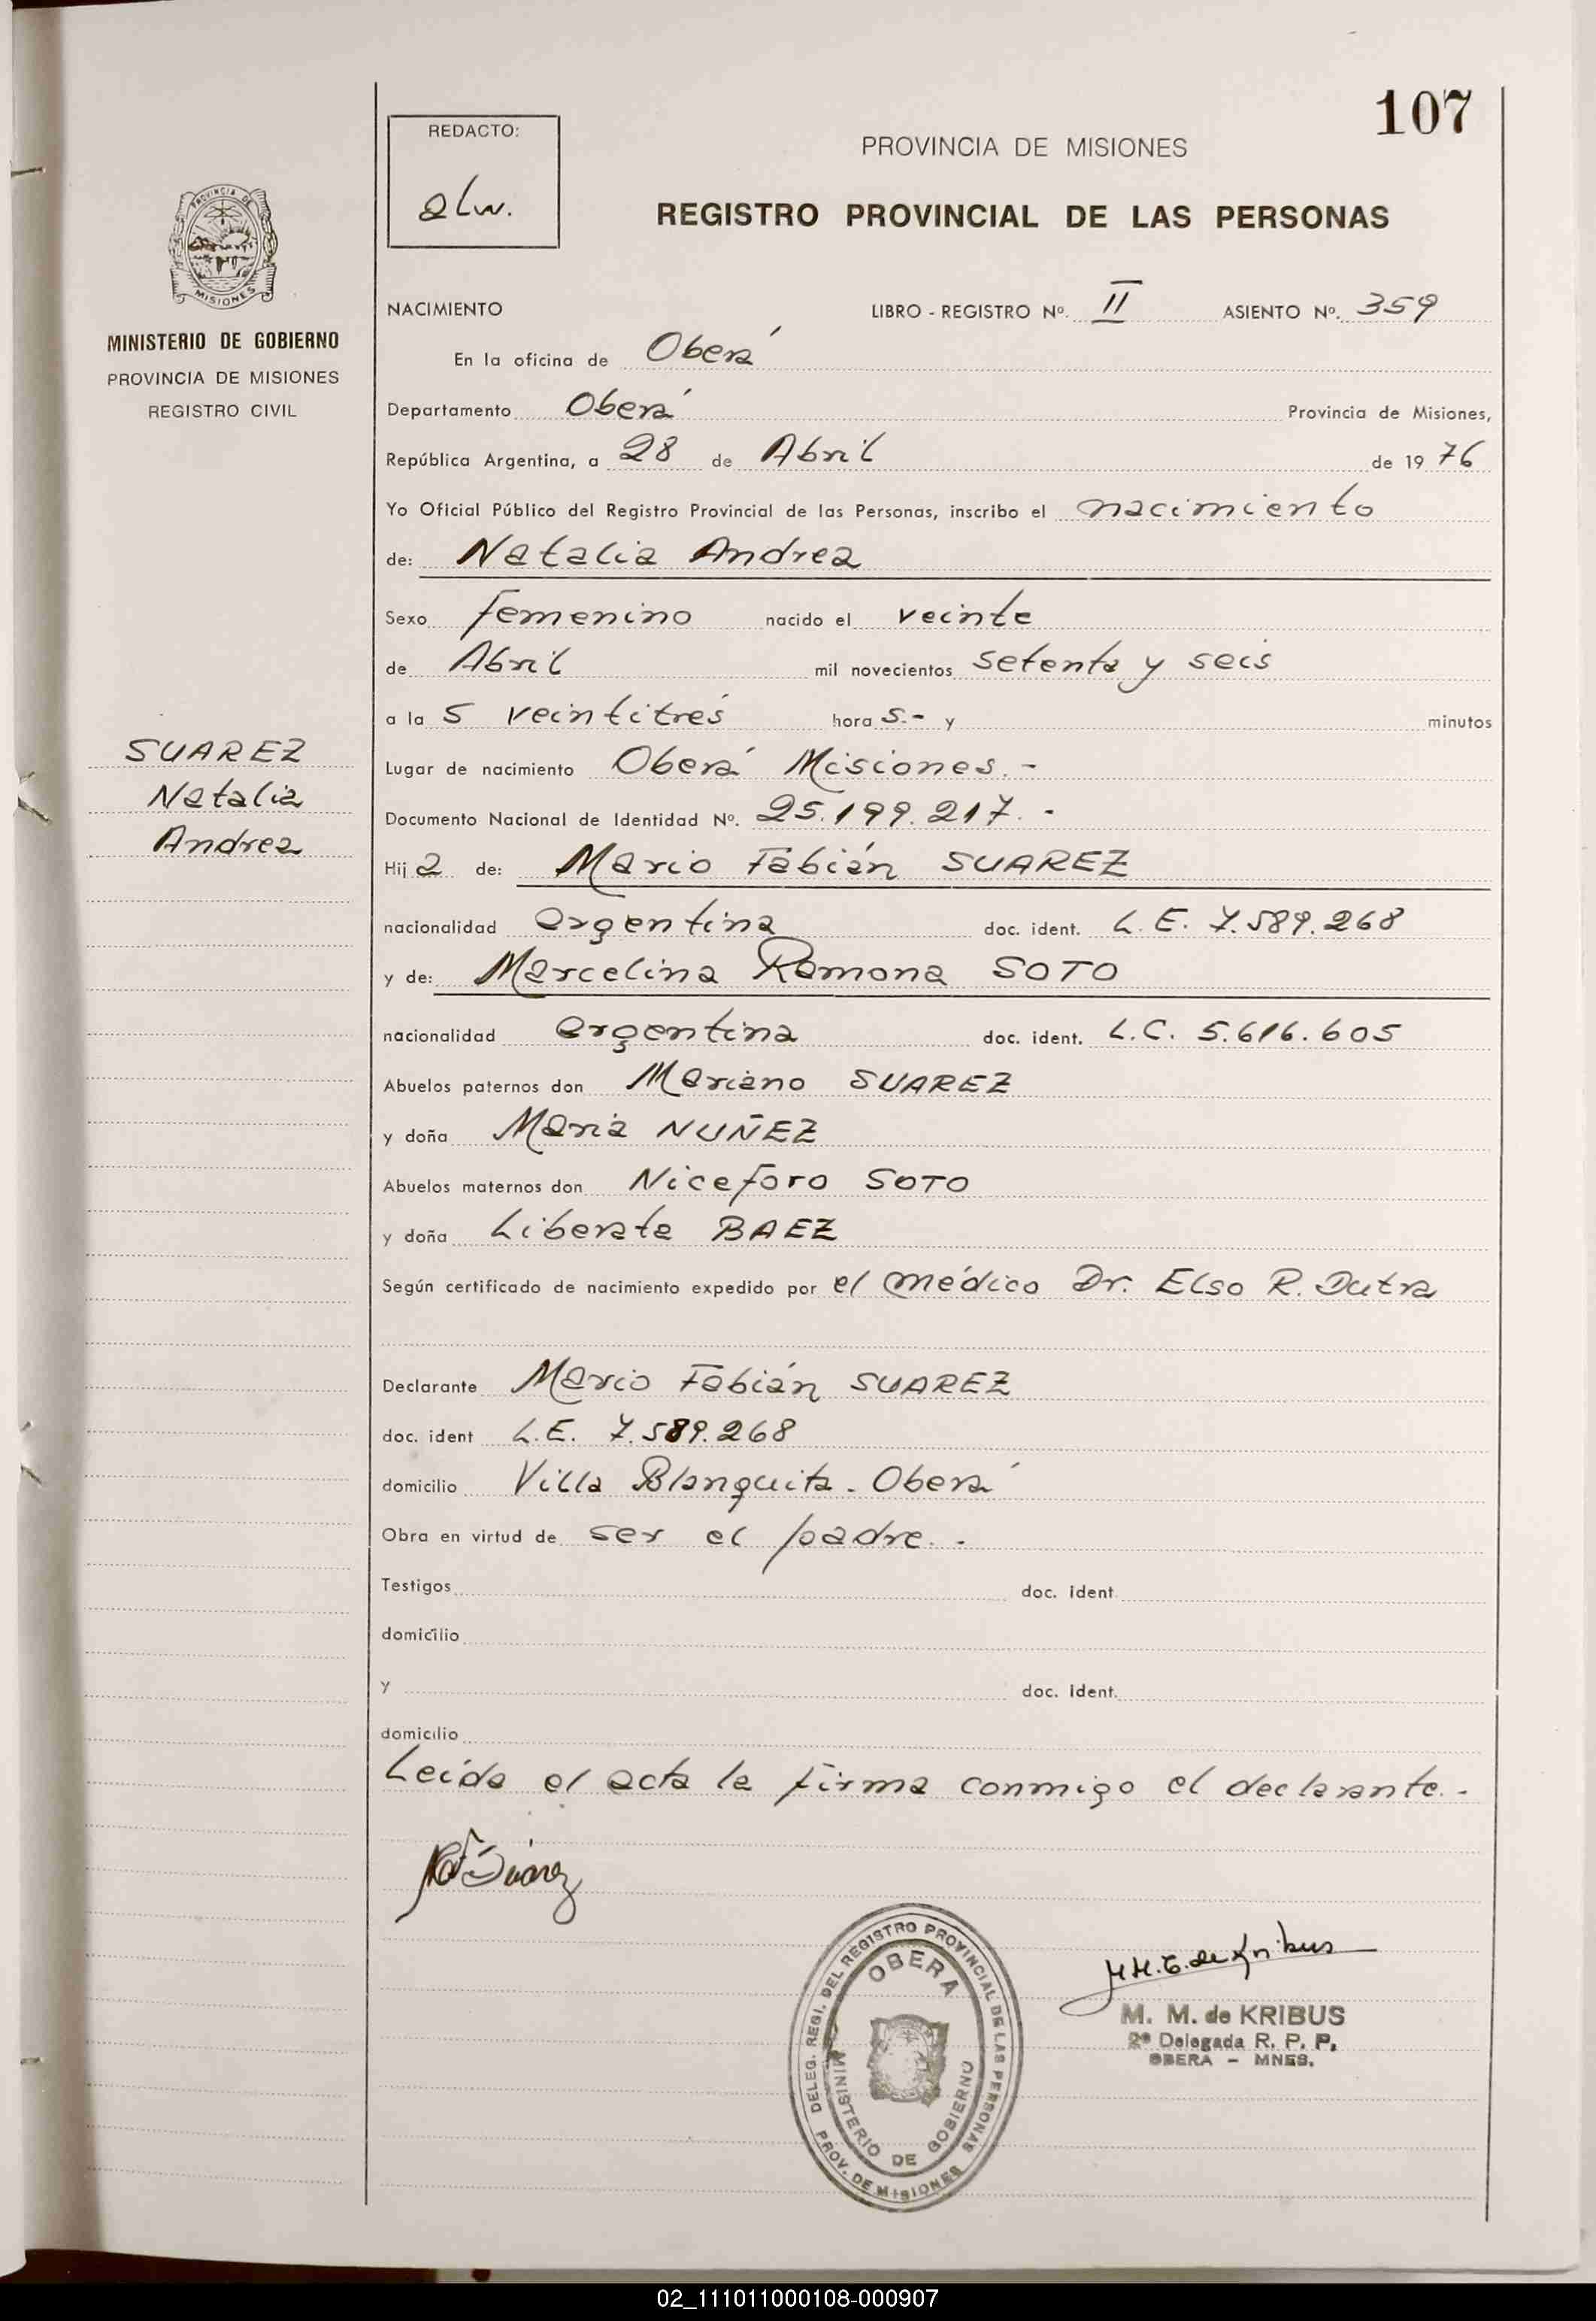 107
REDACTO:
alw.
PROVINCIA DE MISIONES
REGISTRO PROVINCIAL DE LAS PERSONAS
PROVINCIA DE
MISIONES
MINISTERIO DE GOBIERNO
PROVINCIA DE MISIONES
REGISTRO CIVIL
SUAREZ
Natalia
Andrea
NACIMIENTO LIBRO - REGISTRO Nº. II ASIENTO Nº. 359
En la oficina de Oberá
Departamento Oberá Provincia de Misiones,
República Argentina, a 28 de Abril de 19 76
Yo Oficial Público del Registro Provincial de las Personas, inscribo el nacimiento
de: Natalia Andrea
Sexo femenino nacido el veinte
de Abril mil novecientos setenta y seis
a la s veintitrés hora s.- y minutos
Lugar de nacimiento Oberá Misiones.-
Documento Nacional de Identidad Nº. 25.199.217.-
Hij a de: Mario Fabián SUAREZ
nacionalidad argentina doc. ident. L.E. 7.589.268
y de: Marcelina Ramona SOTO
nacionalidad argentina doc. ident. L.C. 5.616.605
Abuelos paternos don Mariano SUAREZ
y doña Maria NUÑEZ
Abuelos maternos don Niceforo SOTO
y doña Liberata BAEZ
Según certificado de nacimiento expedido por el médico Dr. Elso R. Dutra
Declarante Mario Fabián SUAREZ
doc. ident L.E. 7.589.268
domicilio Villa Blanquita - Oberá
Obra en virtud de ser el padre.-
Testigos doc. ident.
domicilio
y doc. ident.
domicilio
Leida el acta la firma conmigo el declarante.-
Suárez
DELEG. REGI. DEL REGISTRO PROVINCIAL DE LAS PERSONAS
OBERA
MINISTERIO DE GOBIERNO
PROV. DE MISIONES
de Kribus
M. M. de KRIBUS
2ª Delegada R. P. P.
OBERA - MNES.
02_111011000108-000907